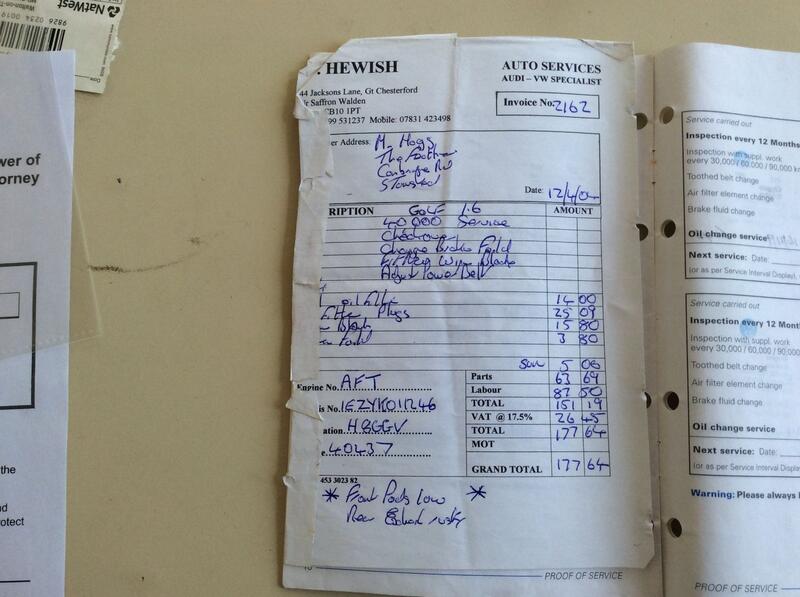 NatWest
9826 0234 0019
wer of
orney
the
nd
otect
. HEWISH
AUTO SERVICES
AUDI – VW SPECIALIST
44 Jacksons Lane, Gt Chesterford
r Saffron Walden
CB10 1PT
99 531237 Mobile: 07831 423498
Invoice No. 2162
er Address: M. Hogg
The
Stansted
Date: 12/4/04
RIPTION
AMOUNT
GOLF 1.6
40,000 Service
Change Brake Fluid
Fit New Wiper Blades
Adjust Power Belt
oil Filter 14 00
Plugs 25 09
15 80
3 80
Sun 5 00
Parts 63 69
Labour 87 50
TOTAL 151 19
VAT @ 17.5% 26 45
TOTAL 177 64
MOT
GRAND TOTAL 177 64
Engine No. AFT
is No. 1EZYK01R246
ation H8GGV
e. 40437
453 3023 82
* Front Pads low *
Rear rusty
PROOF OF SERVICE
Service carried out
Inspection every 12 Months
Inspection with suppl. work
every 30,000 / 60,000 / 90,000 km
Toothed belt change
Air filter element change
Brake fluid change
Oil change service
Next service: Date:
(or as per Service Interval Display)
Service carried out
Inspection every 12 Mont
Inspection with suppl. work
every 30,000 / 60,000 / 90,000
Toothed belt change
Air filter element change
Brake fluid change
Oil change service
Next service: Date:
(or as per Service Interval Displa
Warning: Please always
PROOF OF SERVICE